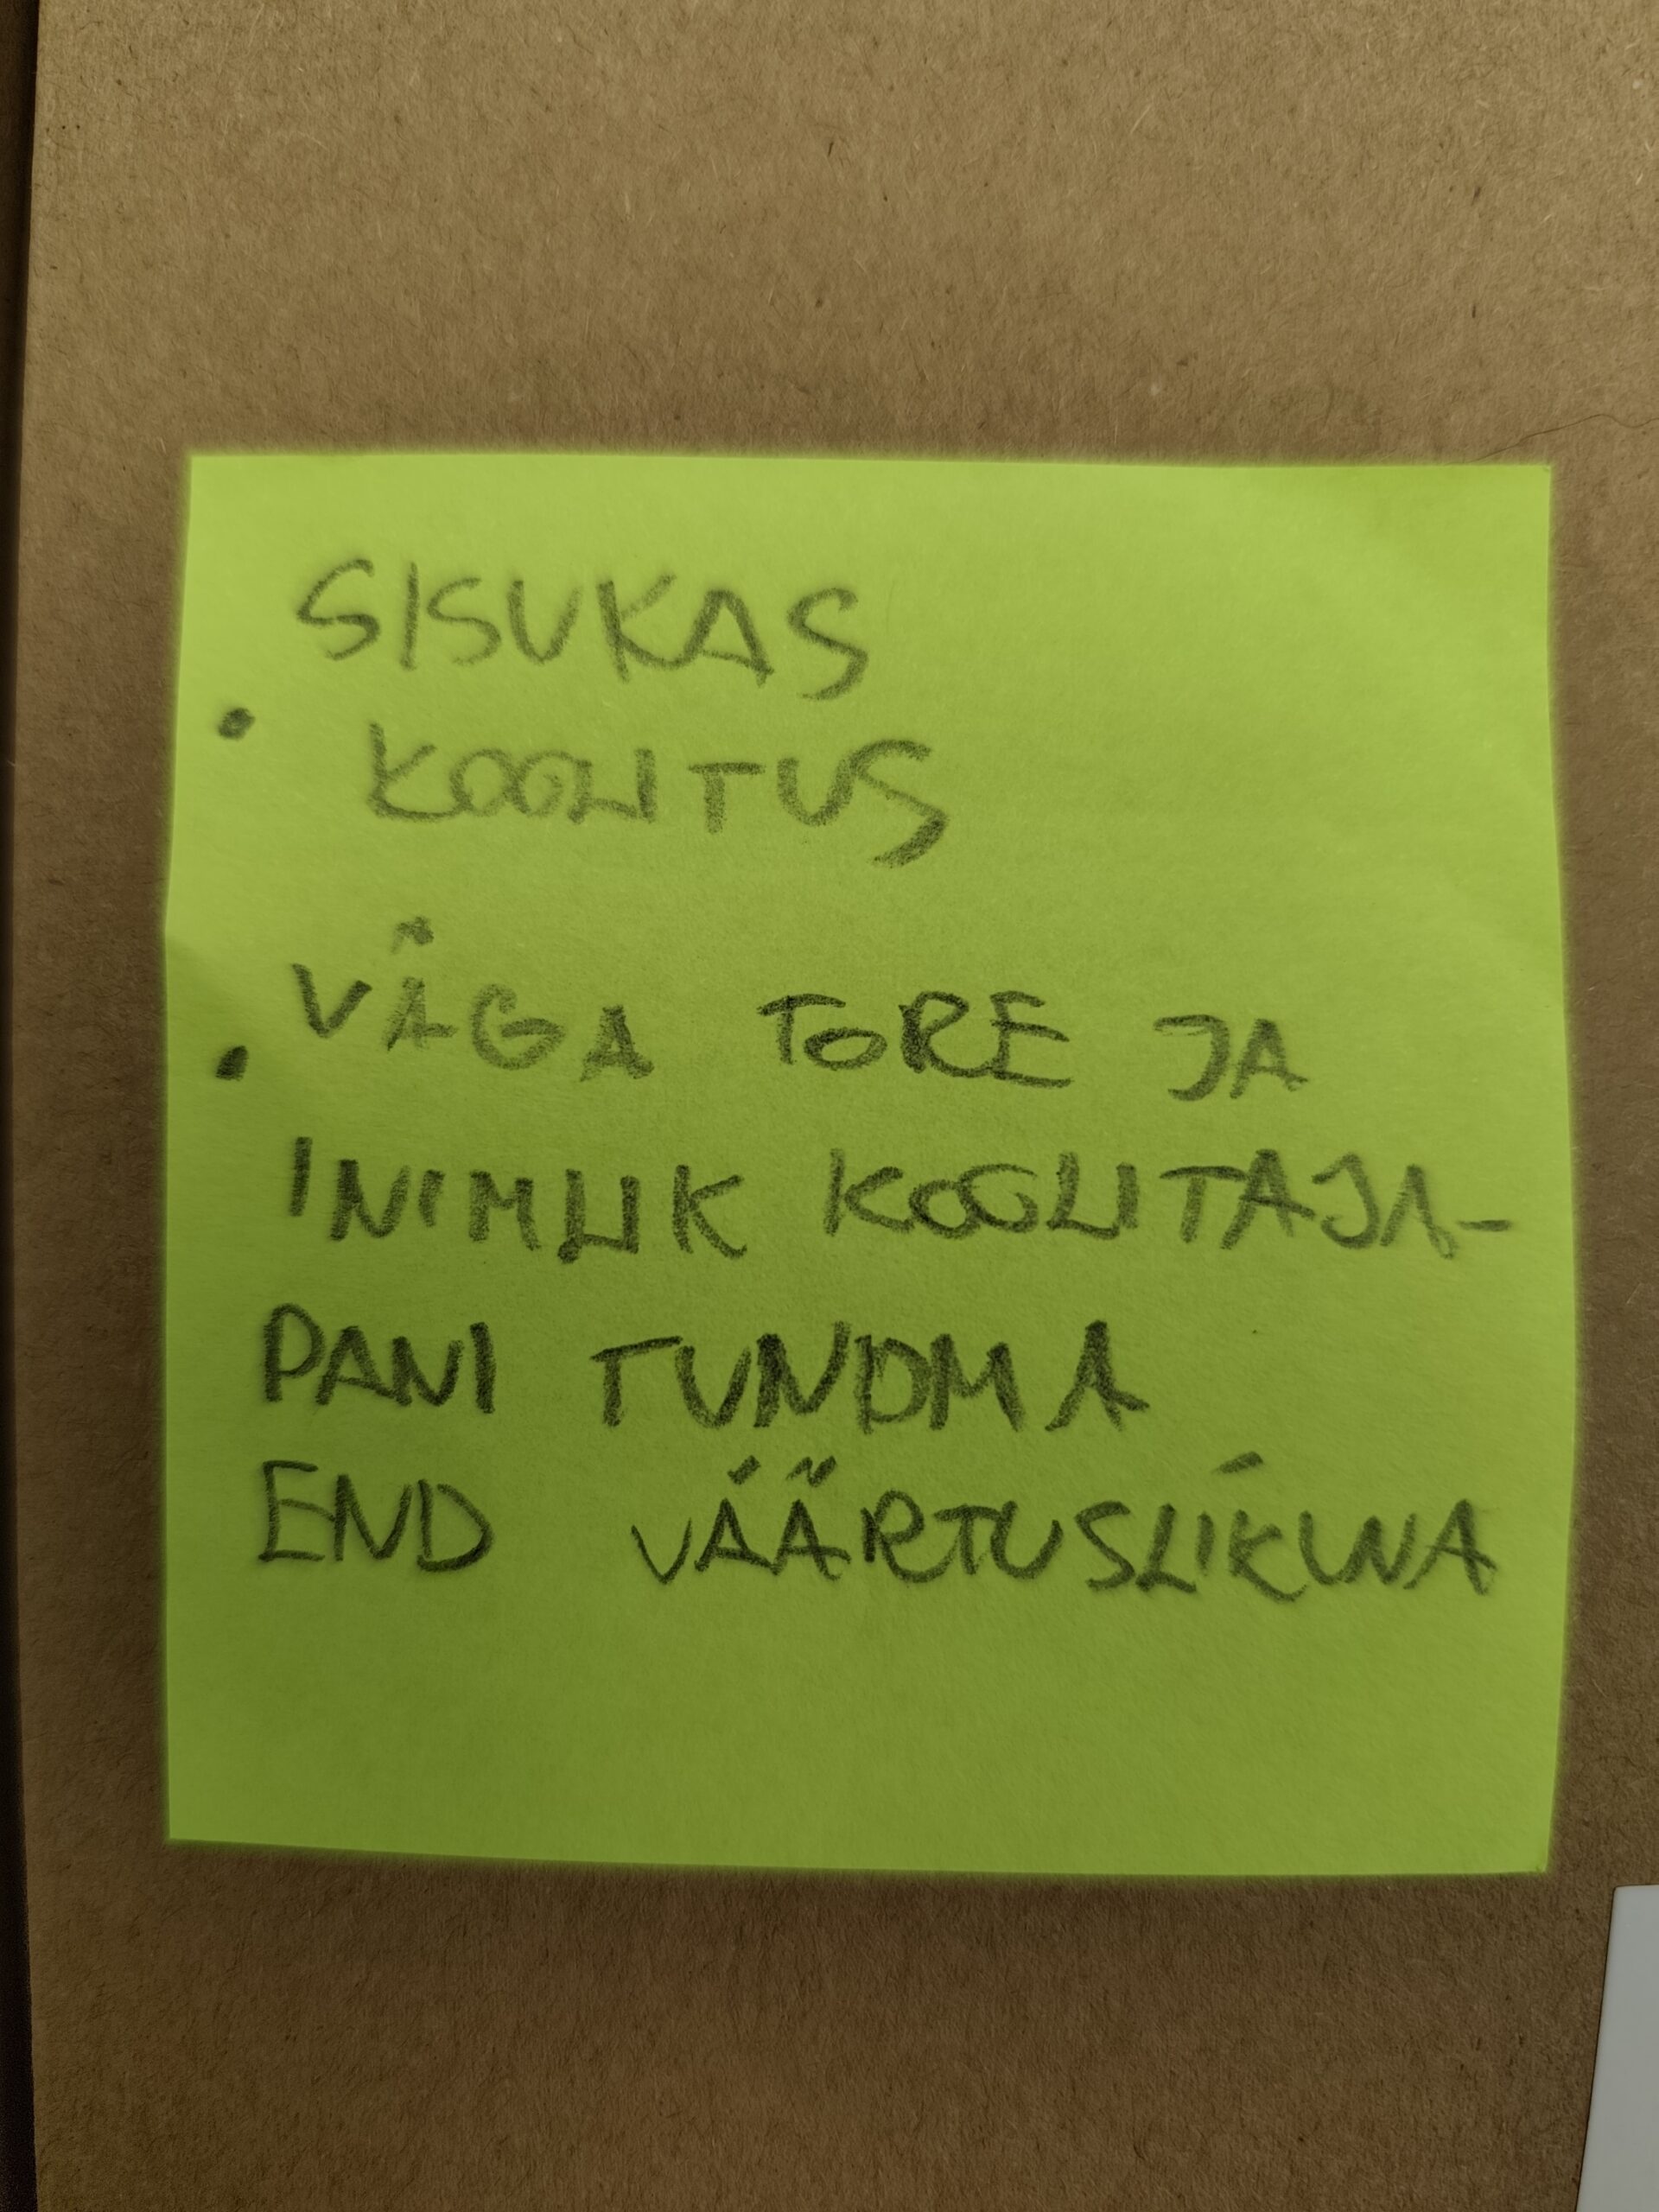 SISUKAS
• KOOLITUS
VÄGA TORE JA
• INIMLIK KOOLITAJA-
PANI TUNDMA
END VÄÄRTUSLIKUNA